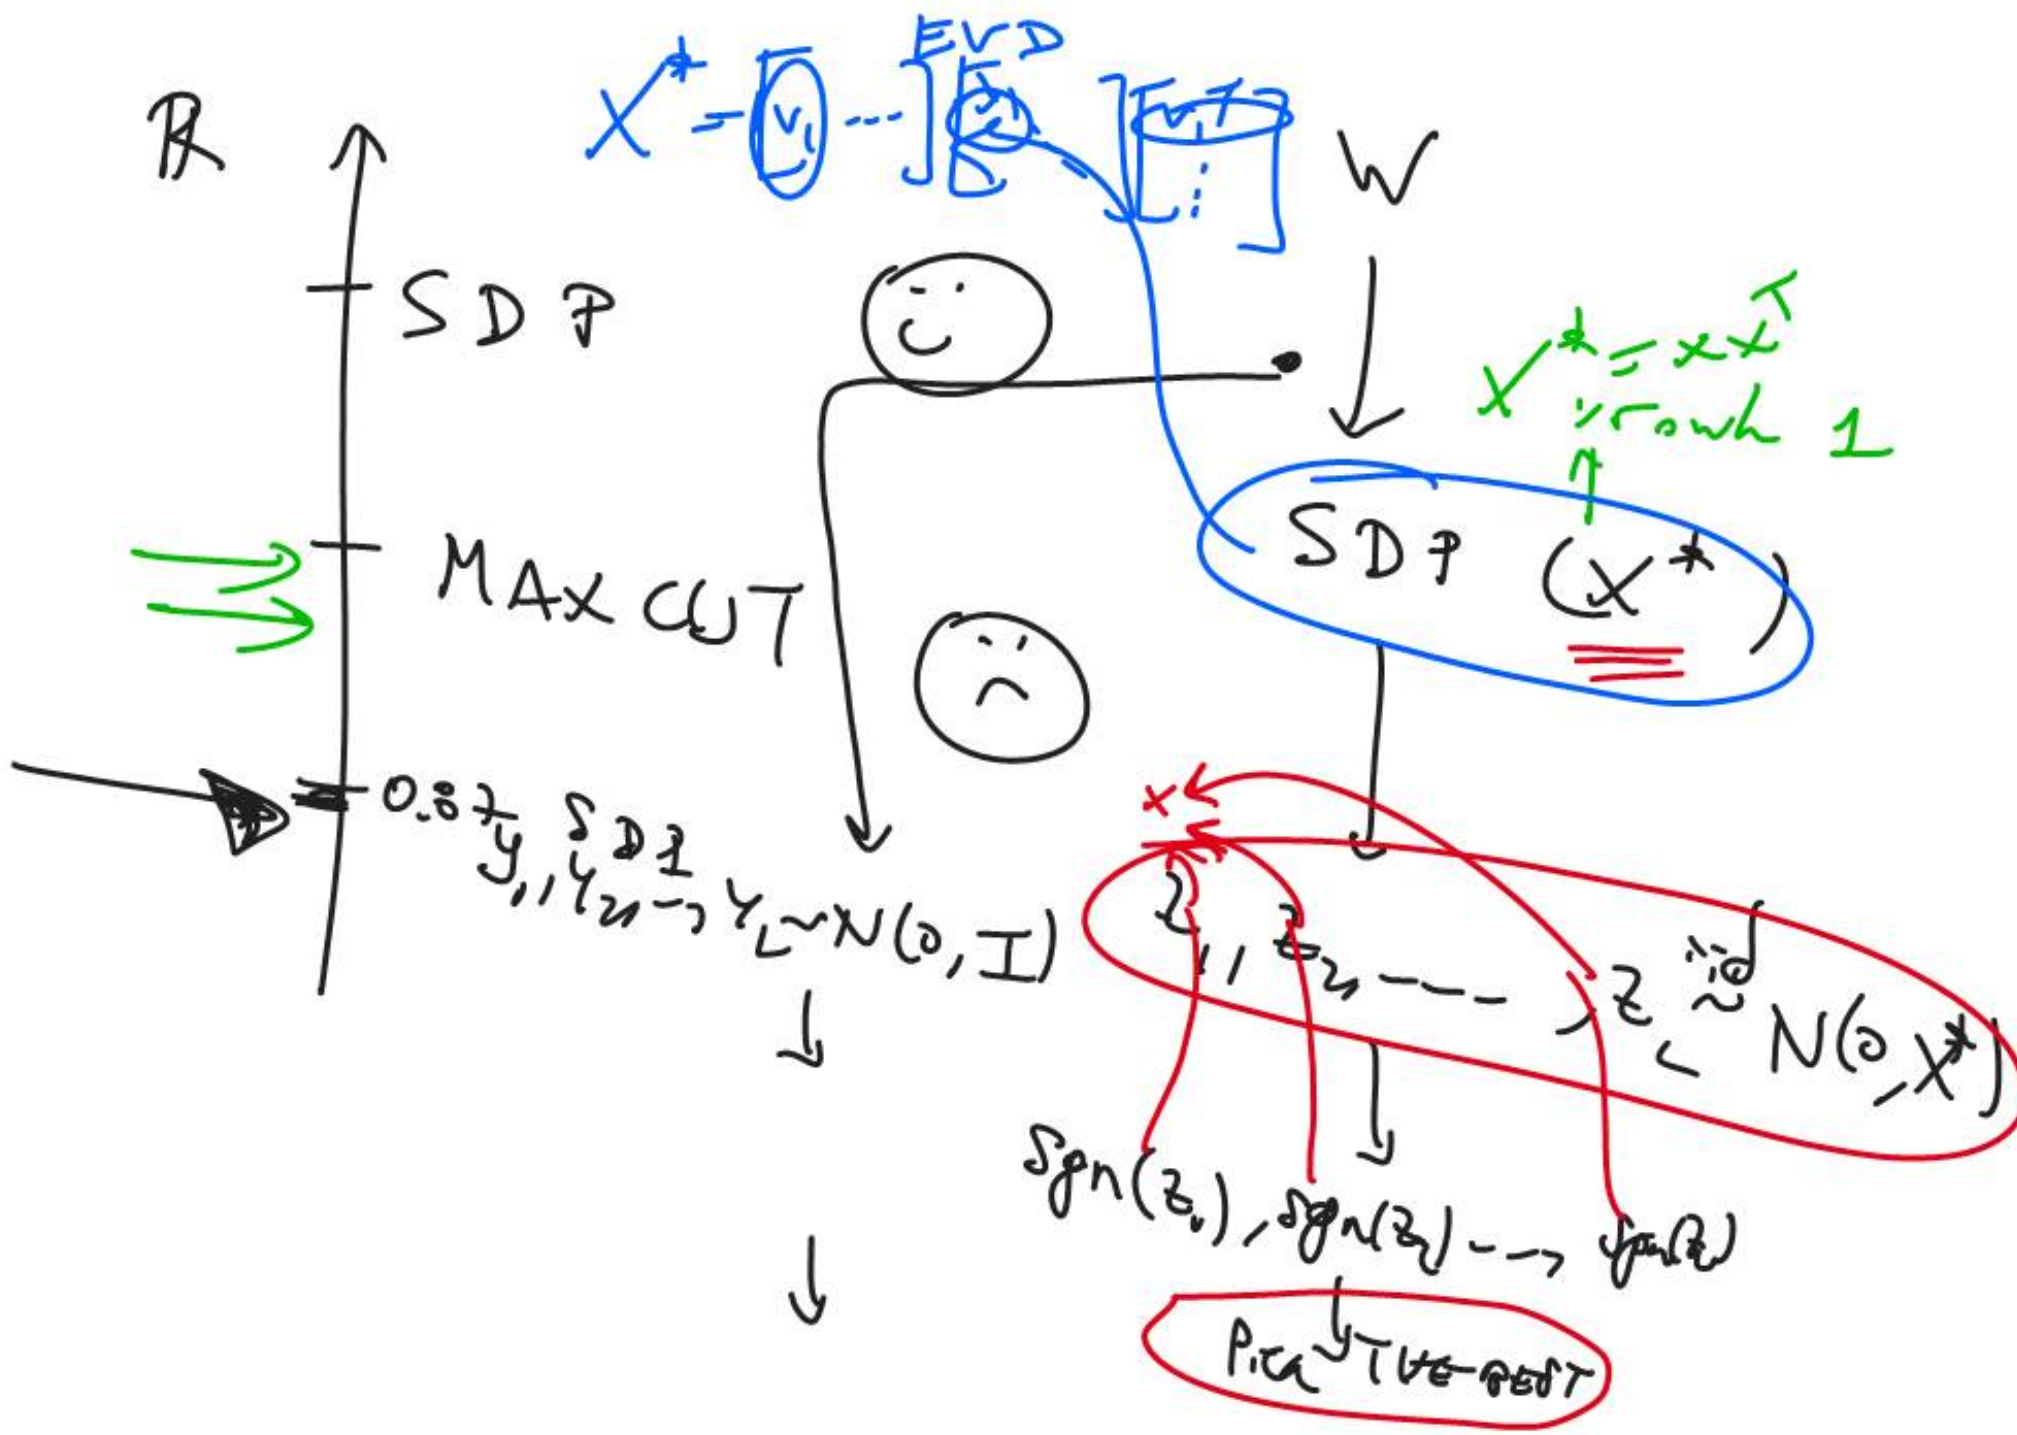 EVD
X* = [v₁ ...] [λ₁ ] [v₁ᵀ ⋮ ]
ℝ
W
SDP
X* = xxᵀ
rank 1
SDP (X*)
MAX CUT
0.87 SDP
x
y₁, y₂, --, y_L ~ N(0, I)
z₁, z₂, ----, z_L i.i.d ~ N(0, X*)
sgn(z₁), sgn(z₂) ---, sgn(z_L)
PICK THE BEST